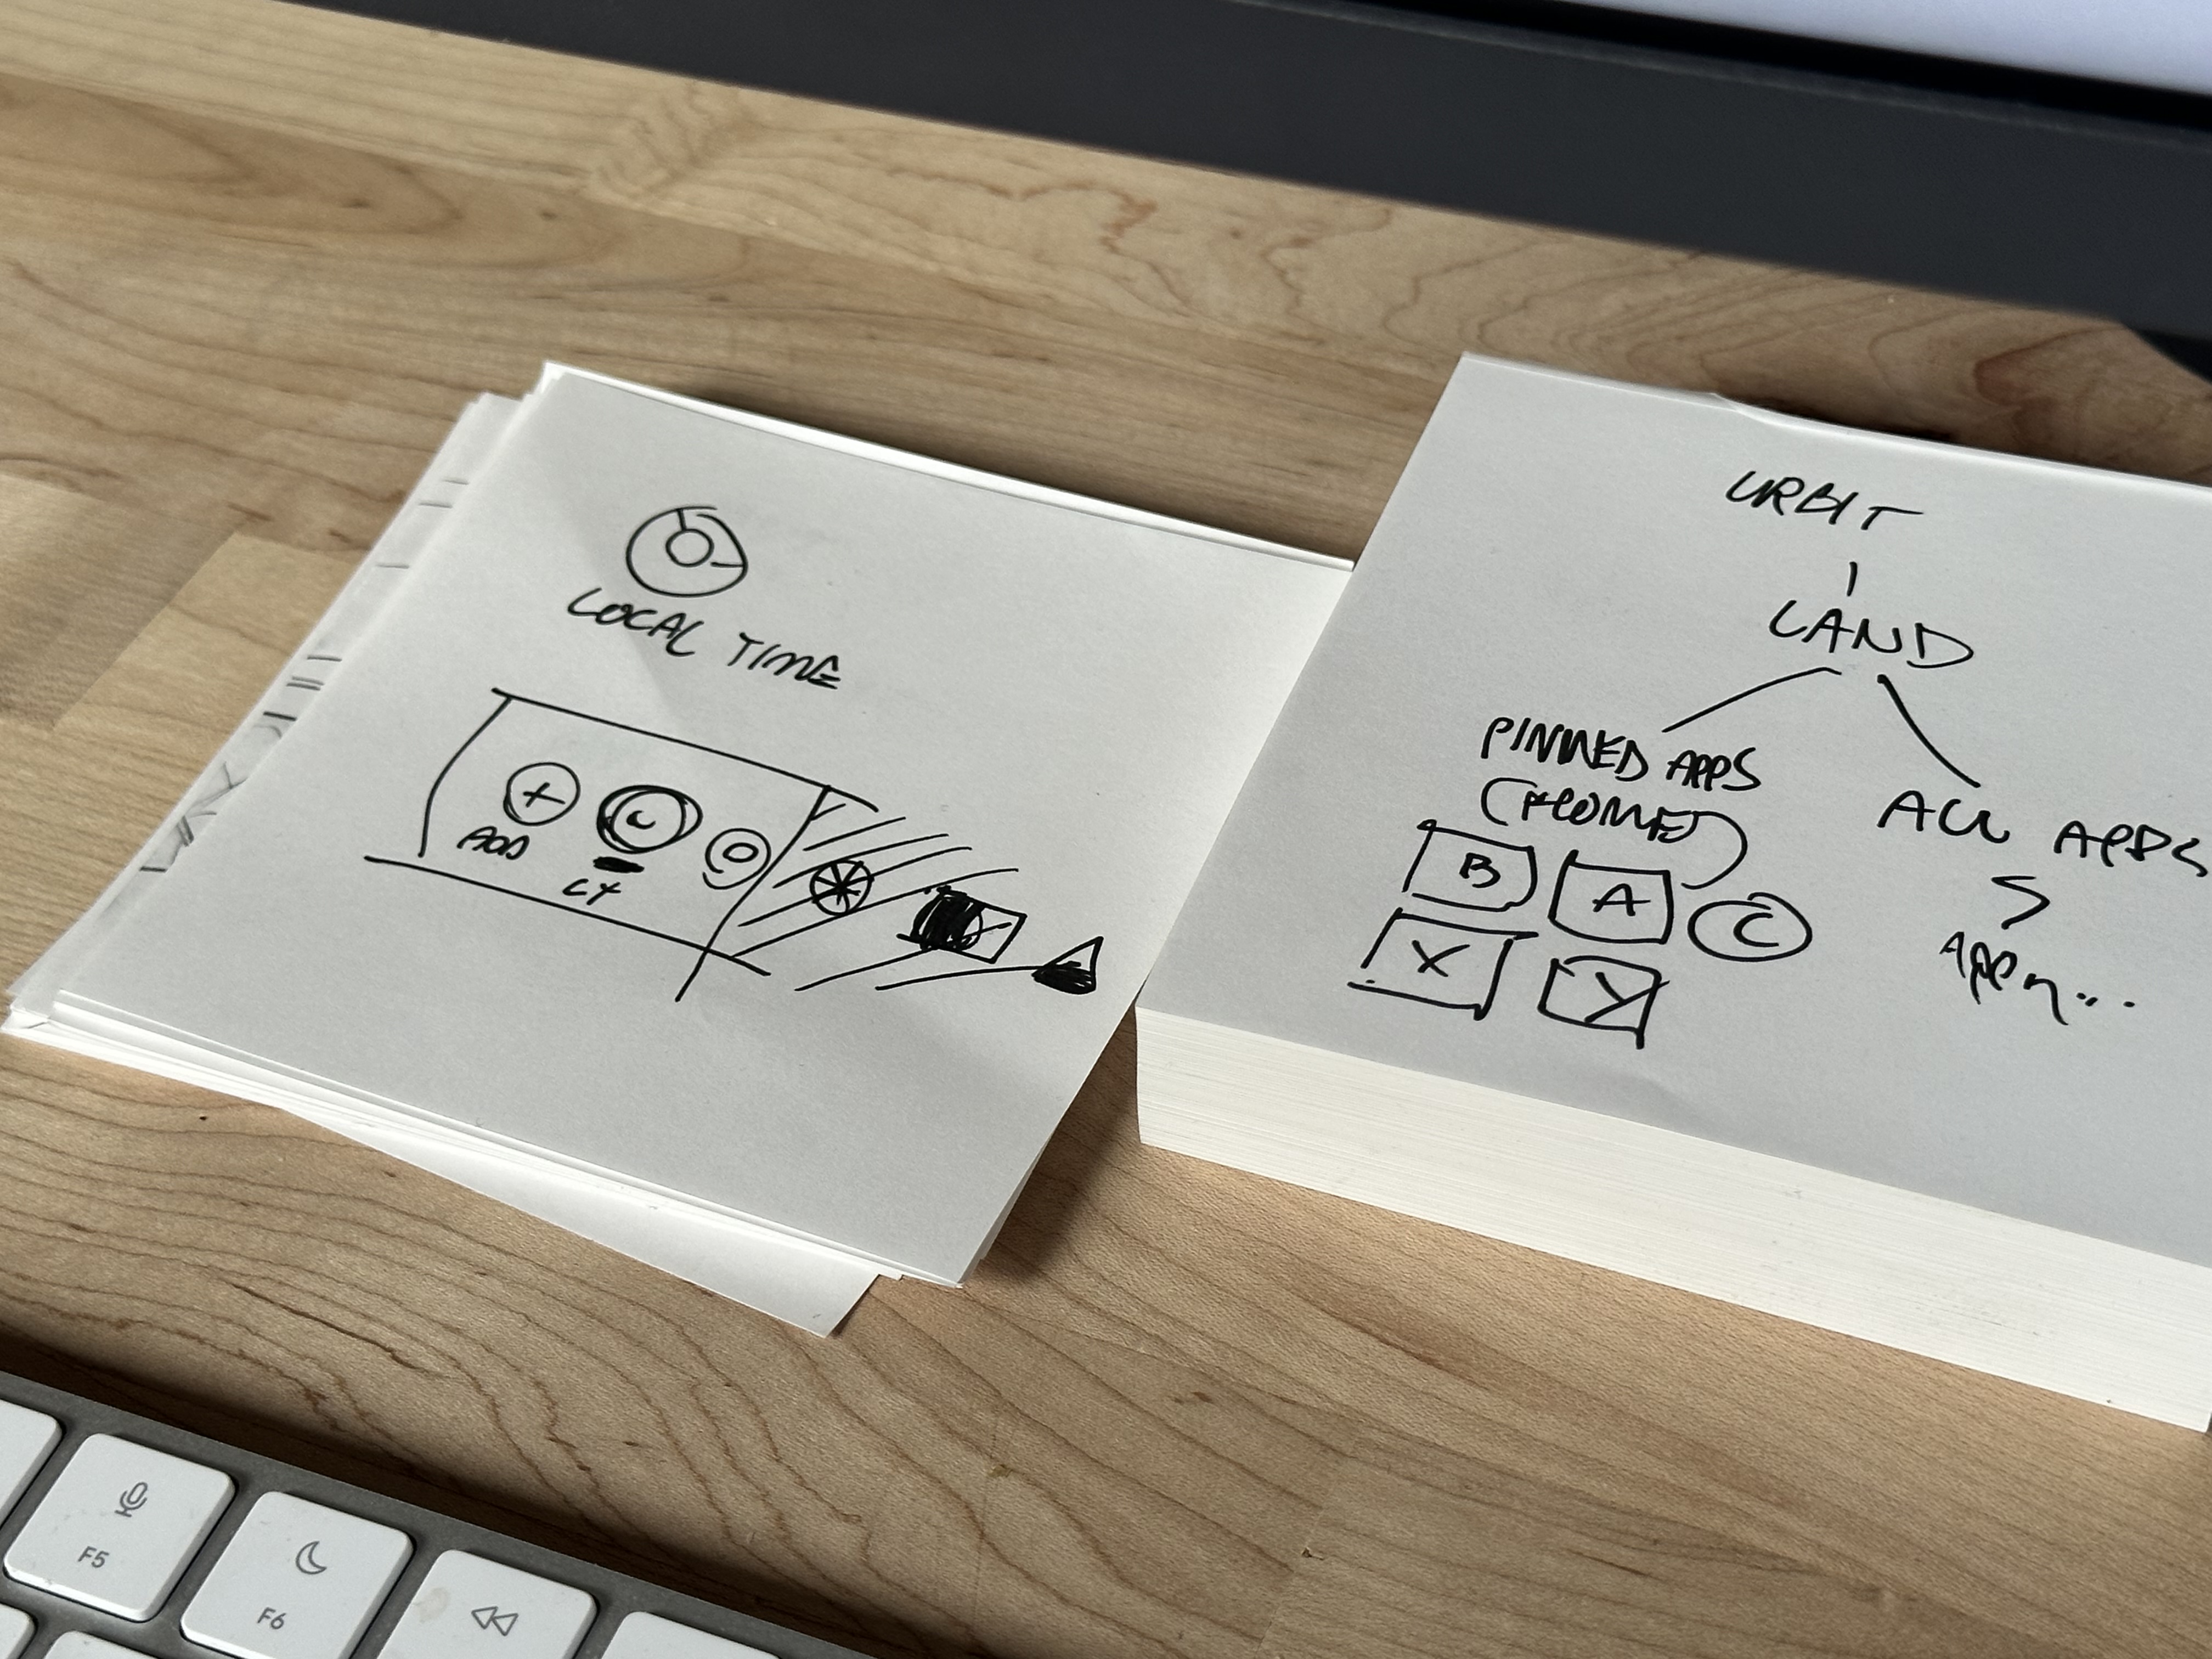 LOCAL TIME
ADD
C
URBIT
LAND
PINNED APPS
(HOME)
ALL APPS
B
A
C
X
Y
F5
F6